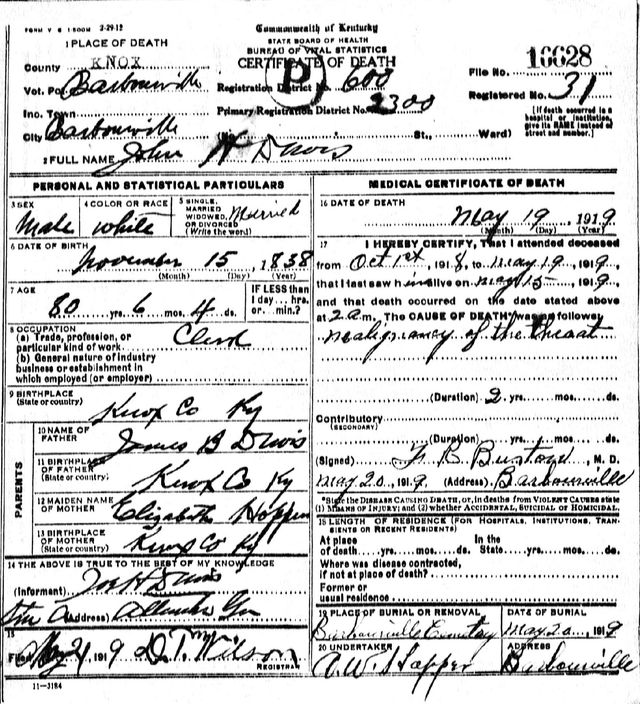 FORM V S 1 500M 2-29-12
Commonwealth of Kentucky
STATE BOARD OF HEALTH
BUREAU OF VITAL STATISTICS
CERTIFICATE OF DEATH
1 PLACE OF DEATH
County KNOX
Vot. Pct Barbourville
Inc. Town
City Barbourville
Registration District No. 600
Primary Registration District No. 2300
P
File No. 16628
Registered No. 31
(No. St., Ward)
[If death occurred in a hospital or institution, give its NAME instead of street and number.]
2 FULL NAME John H Davis
PERSONAL AND STATISTICAL PARTICULARS
3 SEX Male
4 COLOR OR RACE White
5 SINGLE, MARRIED WIDOWED, OR DIVORCED (Write the word) Married
6 DATE OF BIRTH
November 15, 1838
(Month) (Day) (Year)
7 AGE
80 yrs. 6 mos. 4 ds.
IF LESS than 1 day... hrs. or... min.?
8 OCCUPATION
(a) Trade, profession, or particular kind of work Clerk
(b) General nature of industry
business or establishment in
which employed (or employer)
9 BIRTHPLACE
(State or country) Knox Co Ky
PARENTS
10 NAME OF FATHER James B Davis
11 BIRTHPLACE OF FATHER (State or country) Knox Co Ky
12 MAIDEN NAME OF MOTHER Elizabeth Hopper
13 BIRTHPLACE OF MOTHER (State or country) Knox Co Ky
14 THE ABOVE IS TRUE TO THE BEST OF MY KNOWLEDGE
(Informant) Joe H Davis
(Address)
15
Filed May 21, 1919 D. T. Wilson
REGISTRAR
11-3184
MEDICAL CERTIFICATE OF DEATH
16 DATE OF DEATH
May 19, 1919
(Month) (Day) (Year)
17 I HEREBY CERTIFY, That I attended deceased
from Oct 1st, 1918, to May 19, 1919,
that I last saw him alive on May 15, 1919,
and that death occurred on the date stated above
at 2 am. The CAUSE OF DEATH was as follows:
Malignancy of the throat
(Duration) 2 yrs. mos. ds.
Contributory
(SECONDARY)
(Duration) yrs. mos. ds.
(Signed) M. D.
May 20, 1919. (Address) Barbourville
*State the DISEASE CAUSING DEATH, or, in deaths from VIOLENT CAUSES state
(1) MEANS OF INJURY; and (2) whether ACCIDENTAL, SUICIDAL or HOMICIDAL.
18 LENGTH OF RESIDENCE (FOR HOSPITALS, INSTITUTIONS, TRANSIENTS OR RECENT RESIDENTS)
At place of death yrs. mos. ds. In the State yrs. mos. ds.
Where was disease contracted,
if not at place of death?
Former or
usual residence
19 PLACE OF BURIAL OR REMOVAL
Barbourville Cemetery
DATE OF BURIAL
May 20, 1919
20 UNDERTAKER
A. W. Hopper
ADDRESS
Barbourville